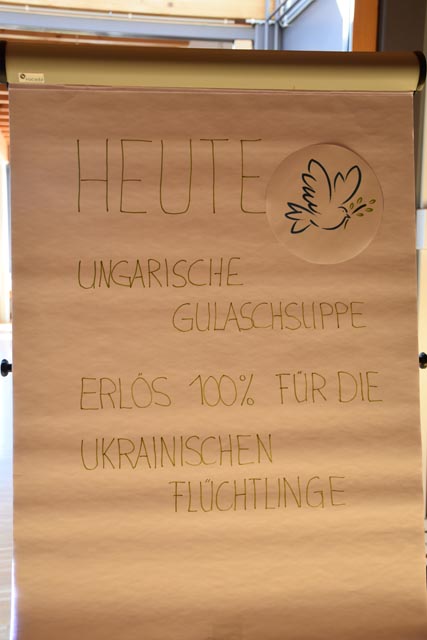 HEUTE
UNGARISCHE
GULASCHSUPPE
ERLÖS 100% FÜR DIE
UKRAINISCHEN
FLÜCHTLINGE